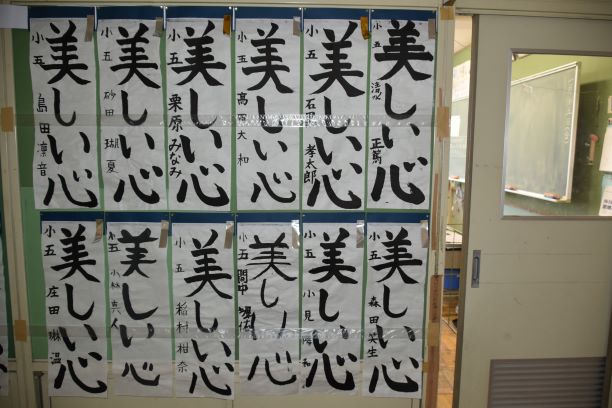 美しい心
小五
島田凛音
美しい心
小五
砂田瑚夏
美しい心
小五
栗原みなみ
美しい心
小五
高原大和
美しい心
小五
孝太郎
美しい心
小五
正篤
美しい心
小五
庄田
美しい心
小五
小林真人
美しい心
小五
稲村柑奈
美しい心
小五
間中
美しい心
小五
小見
美しい心
小五
森田笑生